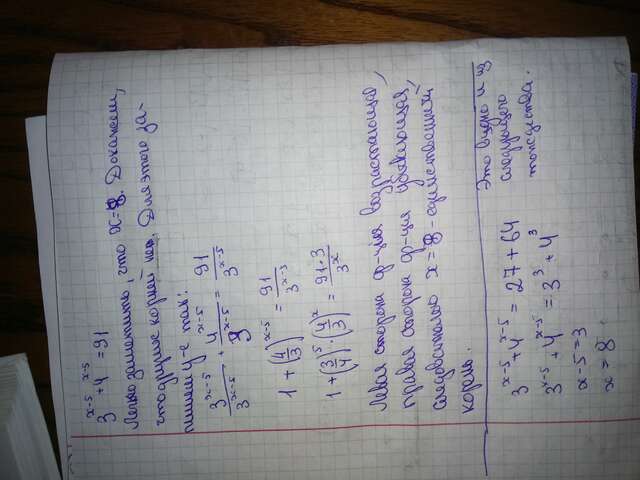 3^{x-5} + 4^{x-5} = 91
Легко заметить, что x=8. Докажем,
что других корней нет. Для этого за-
пишем ур-е так:
\frac{3^{x-5}}{3^{x-5}} + \frac{4^{x-5}}{3^{x-5}} = \frac{91}{3^{x-5}}
1 + (\frac{4}{3})^{x-5} = \frac{91}{3^{x-5}}
1 + (\frac{3}{4})^5 · (\frac{4}{3})^x = \frac{91·3}{3^x}
Левая сторона ф-ция возрастающая,
правая сторона ф-ция убывающая,
следовательно x=8 - единственный
корень.
3^{x-5} + 4^{x-5} = 27 + 64
3^{x-5} + 4^{x-5} = 3^3 + 4^3
x-5=3
x=8
Это видно и из
следующего
тождества.